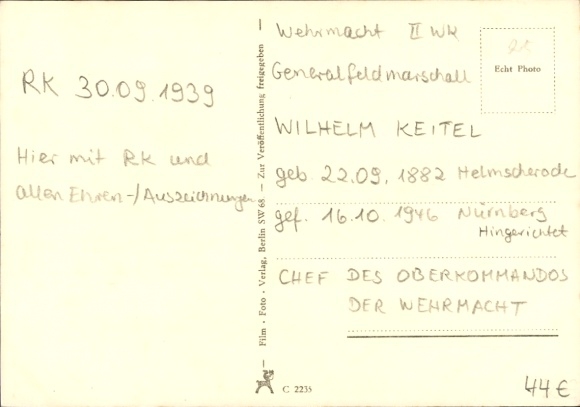 RK 30.09.1939
Hier mit RK und
allen Ehren-/Auszeichnungen
Film · Foto · Verlag, Berlin SW 68 — Zur Veröffentlichung freigegeben
Wehrmacht II WK
Generalfeldmarschall
Echt Photo
WILHELM KEITEL
geb. 22.09.1882 Helmscherode
gef. 16.10.1946 Nürnberg
Hingerichtet
CHEF DES OBERKOMMANDOS
DER WEHRMACHT
C 2235
44€